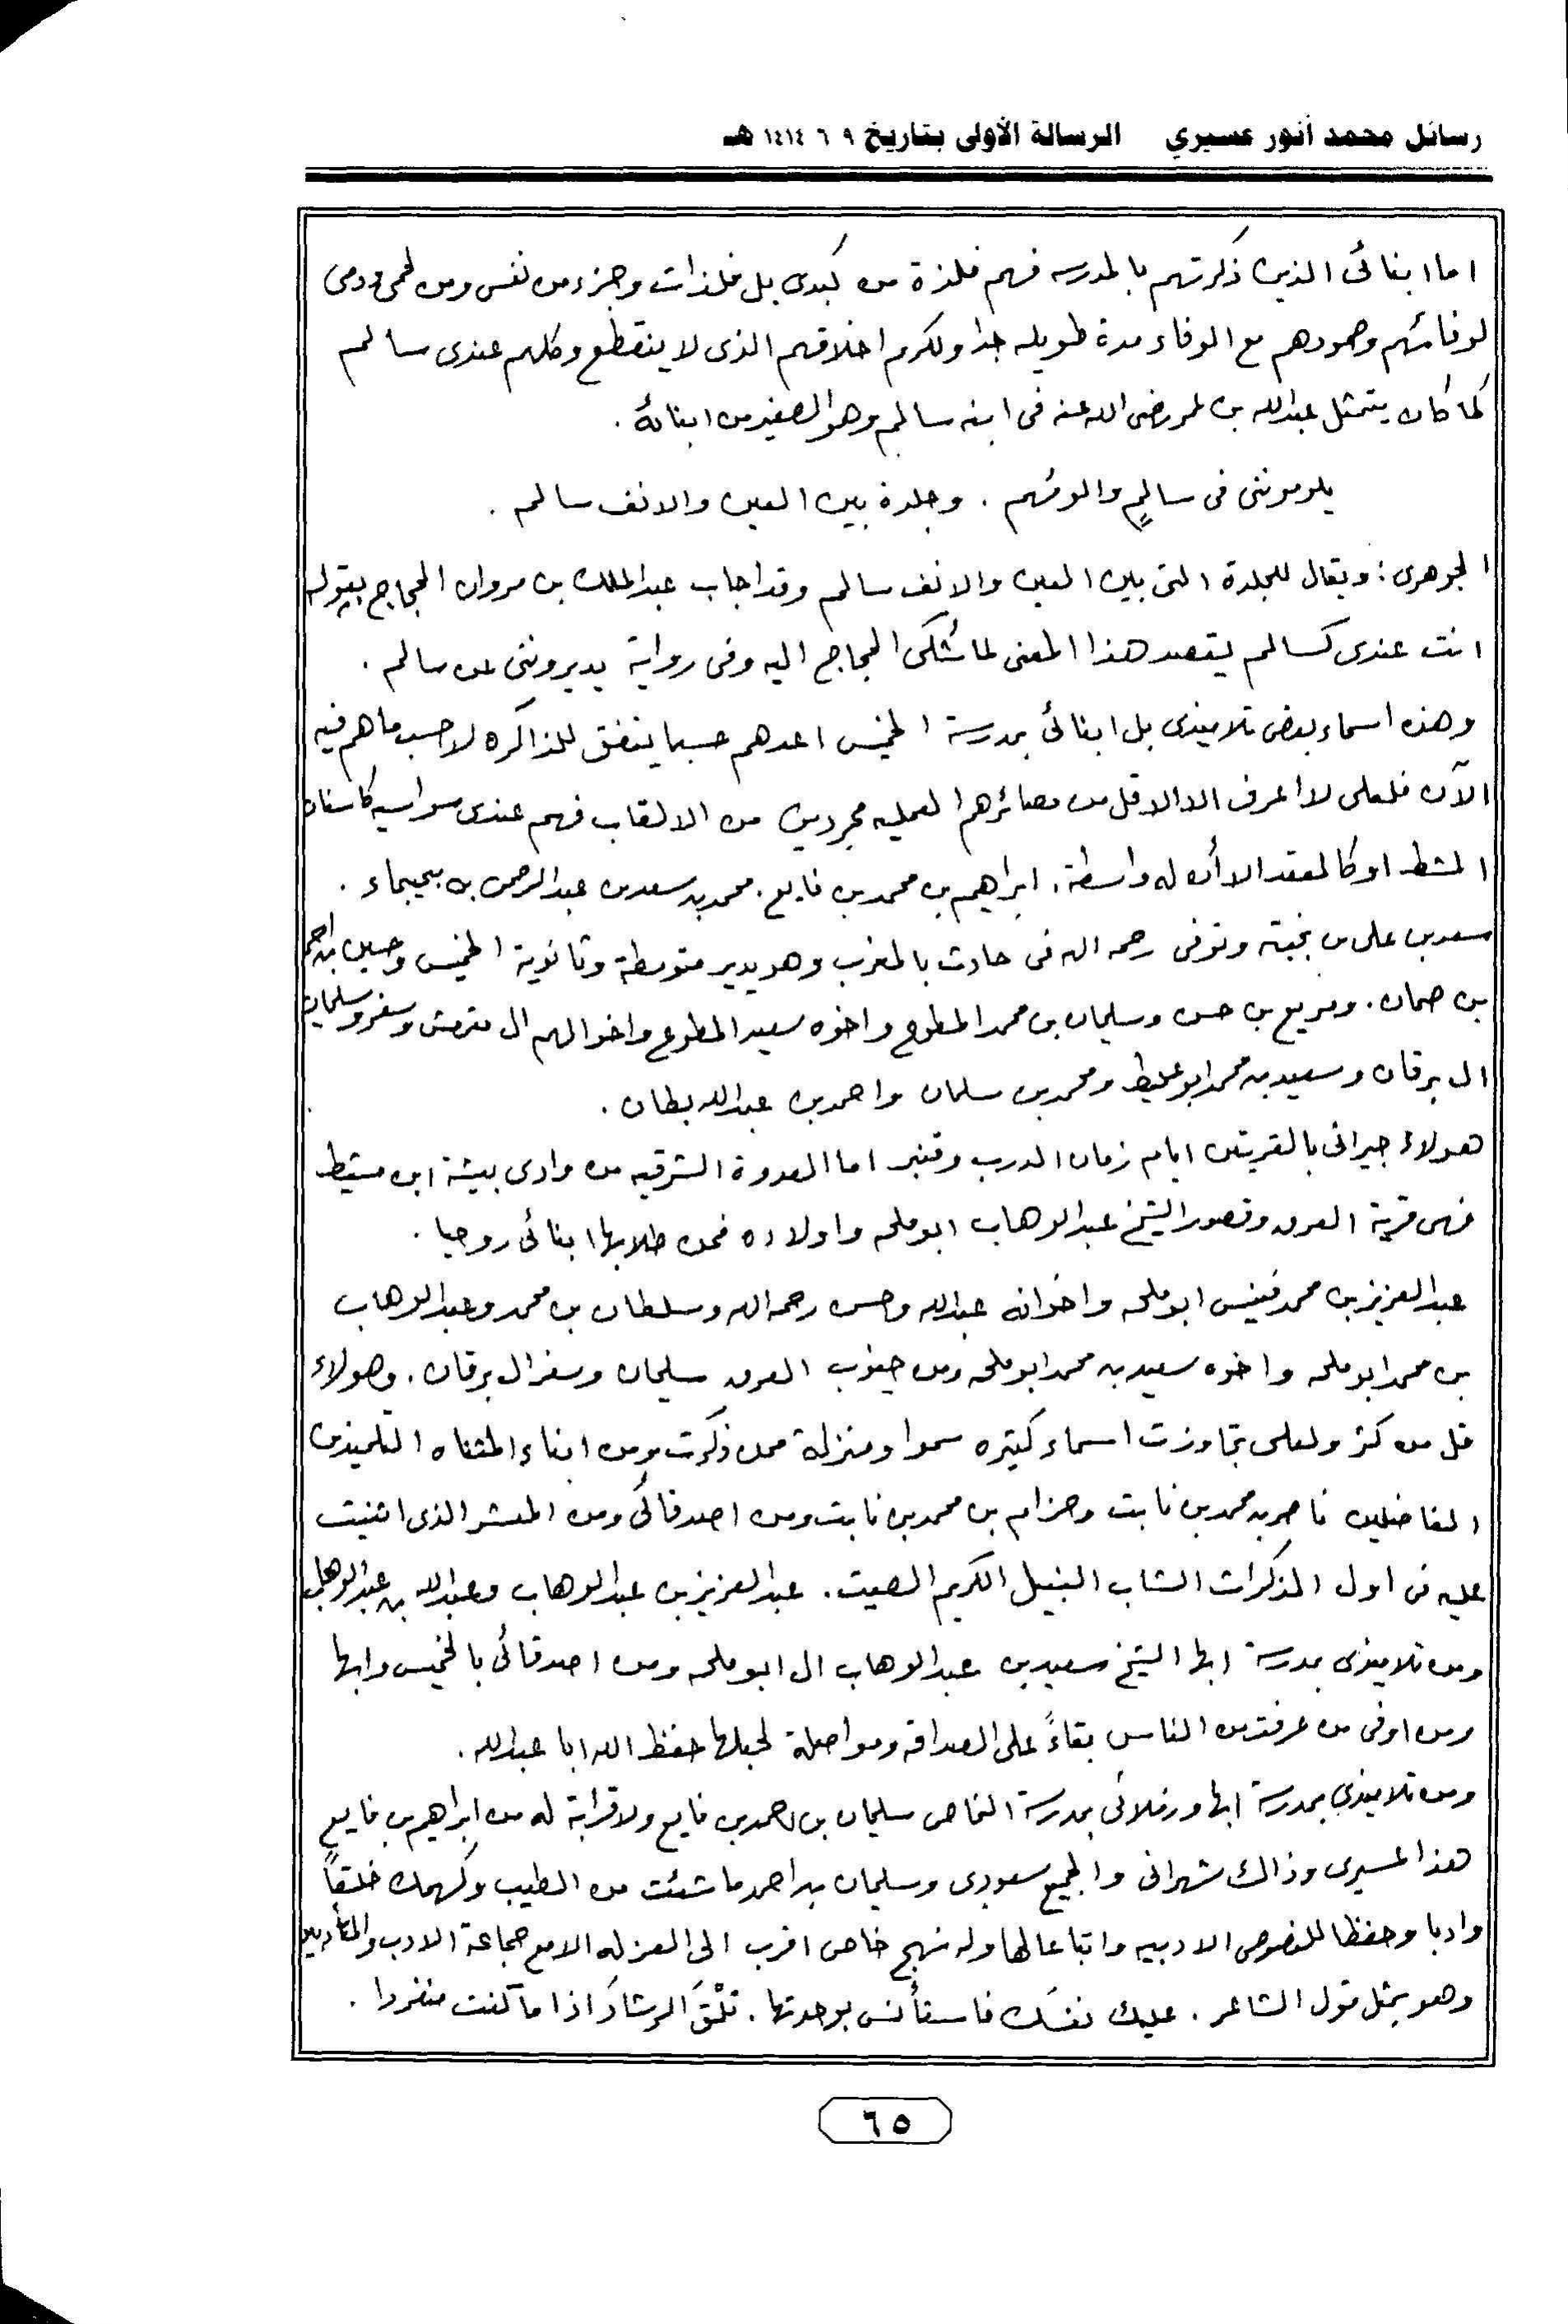 رسائل محمد أنور عسيري الرسالة الأولى بتاريخ ٩ ٦ ١٤١٤ هـ
اما ابنائى الذين ذكرتهم بالمدرسه فهم فلذة من كبدى بل فلذات وجزء من نفسى ومن لحمى ودمى
لوفائهم وصمودهم مع الوفاء مدة طويله جدا ولكرم اخلاقهم الذى لا ينقطع وكلهم عندى سالم
كما كان يتمثل عبدالله بن عمر رضى الله عنه فى ابنه سالم وهو الصغير من ابنائه .
يلوموننى فى سالمٍ والومهم . وجلدة بين العين والانف سالم .
الجوهرى : ويقال للجلدة التى بين العين والانف سالم وقد اجاب عبدالملك بن مروان الحجاج بقوله
انت عندى كسالم يقصد هذا المعنى لما شكى الحجاج اليه وفى رواية يديروننى عن سالم .
وهذه اسماء بعض تلاميذى بل ابنائى بمدرسة الخميس اعدهم حسبما يتفق للذاكره لا حسب ما هم فيه
الآن فلعلى لا اعرف الا الاقل من مصائرهم العمليه مجردين من الالقاب فهم عندى سواسيه كاسنان
المشط او كالعقد الا أن له واسطة . ابراهيم بن محمد بن فايع . محمد بن سعد بن عبدالرحمن بن
سعد بن على بن وتوفى رحمه الله فى حادث بالمغرب وهو يدير متوسطة وثانوية الخميس وحسين بن احمد
بن . بن حسن وسليمان بن محمد المطوع واخوه سعيد المطوع واخوالهم ال وسفر وسليمان
ال برقان وسعيد بن محمد ابو ومحمد بن سلمان واحمد بن عبدالله بطان .
هولاء جيرانى بالقريتين ايام زمان الدرب وقنبر اما العدوة الشرقيه من وادى بيشة ابن مشيط
فهى قرية العرق وقصور الشيخ عبدالوهاب ابوملحه واولاده فمن طلابها ابنائى روحيا .
عبدالعزيز بن محمد ابوملحه واخوانه عبدالله وحسن رحمه الله وسلطان بن محمد وعبدالوهاب
بن محمد ابوملحه واخوه سعيد بن محمد ابوملحه ومن جنوب العرق سليمان وسفر ال برقان . وهولاء
قل من كثر ولعلى تجاوزت اسماء كثيره سموا ومنزلة ممن ذكرت ومن ابناء المثناه التلميذين
الفاضلين ناصر بن محمد بن نابت وحزام بن محمد بن نابت ومن اصدقائى ومن المعشر الذى اثنيت
عليه فى اول المذكرات الشاب النبيل الكريم الصيت . عبدالعزيز بن عبدالوهاب وعبدالله بن عبدالوهاب
ومن تلاميذى بمدرسة ابها الشيخ سعيد بن عبدالوهاب ال ابوملحه ومن اصدقائى بالخميس وابها
ومن اوفى من عرفت من الناس بقاءً على الصداقه ومواصلة لحبلها حفظ الله ابا عبدالله .
ومن تلاميذى بمدرسة ابها وزملائى بمدرسة سليمان بن احمد بن فايع ولا قرابة له من ابراهيم بن فايع
هذا عسيرى وذاك شهرانى والجميع سعودى وسليمان بن احمد ما شئت من الطيب وكهمك خلقاً
وادبا وحفظا للنصوص الادبيه واتباعا لها وله نهج خاص اقرب الى العزله الا مع جماعة الادب والمتأدبين
وهو يمثل قول الشاعر . عليك نفسَك فاستأنس بوحدتها . تلْقَ الرشادَ اذا ما كنت منفردا .
٦٥